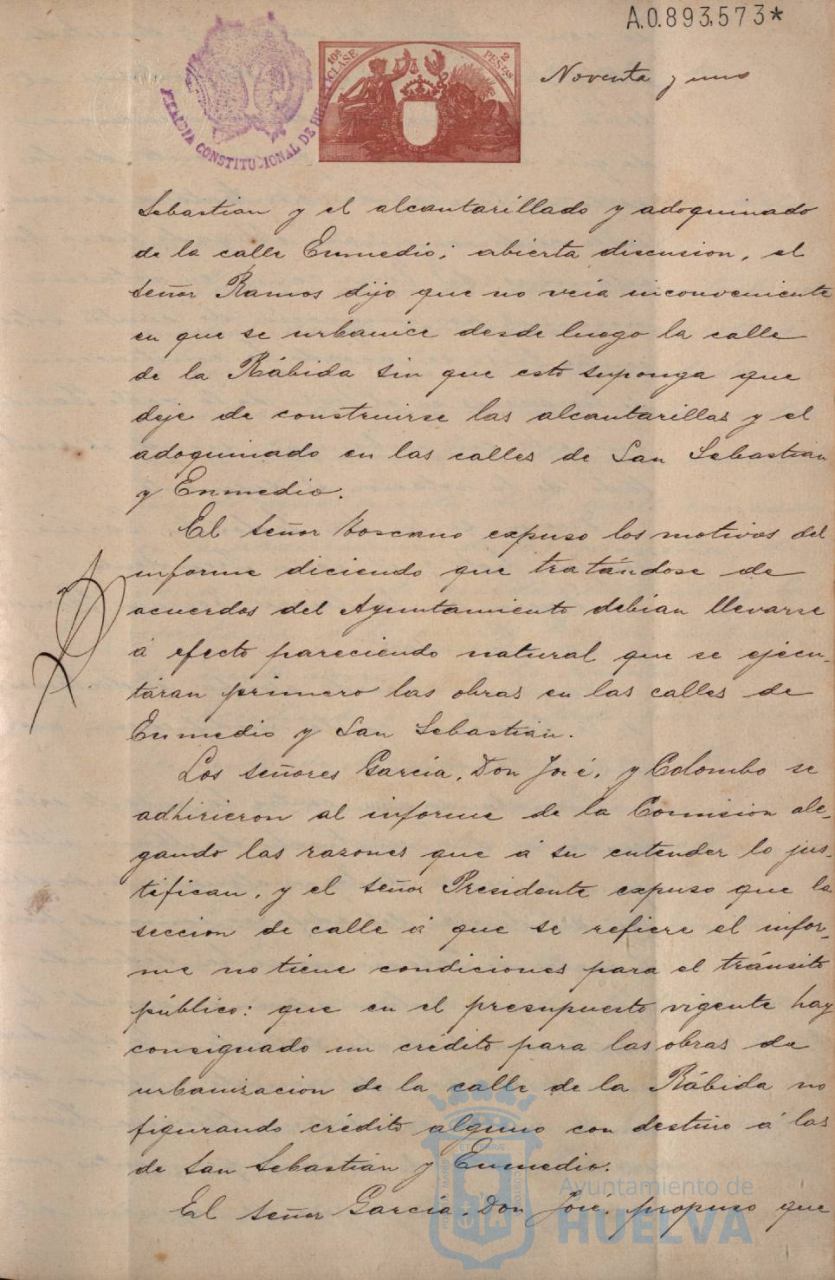 A.0.893,573*
ALCALDIA CONSTITUCIONAL DE HUELVA
10ª CLASE
2 PESETAS
Noventa y uno
Sebastian y el alcantarillado y adoquinado
de la calle Enmedio; abierta discusion, el
señor Ramos dijo que no veía inconveniente
en que se urbanice desde luego la calle
de la Rábida sin que esto suponga que
deje de construirse las alcantarillas y el
adoquinado en las calles de San Sebastian
y Enmedio.
El señor Toscano expuso los motivos del
informe diciendo que tratándose de
acuerdos del Ayuntamiento debian llevarse
á efecto pareciendo natural que se ejecu-
táran primero las obras en las calles de
Enmedio y San Sebastian.
Los señores García, Don José, y Colombo se
adhirieron al informe de la Comision ale-
gando las razones que á su entender lo jus-
tifican, y el señor Presidente expuso que la
seccion de calle á que se refiere el infor-
me no tiene condiciones para el tránsito
público: que en el presupuesto vigente hay
consignado un crédito para las obras de
urbanizacion de la calle de la Rábida no
figurando crédito alguno con destino á las
de San Sebastián y Enmedio.
El señor García, Don José, propuso que
Ayuntamiento de
HUELVA